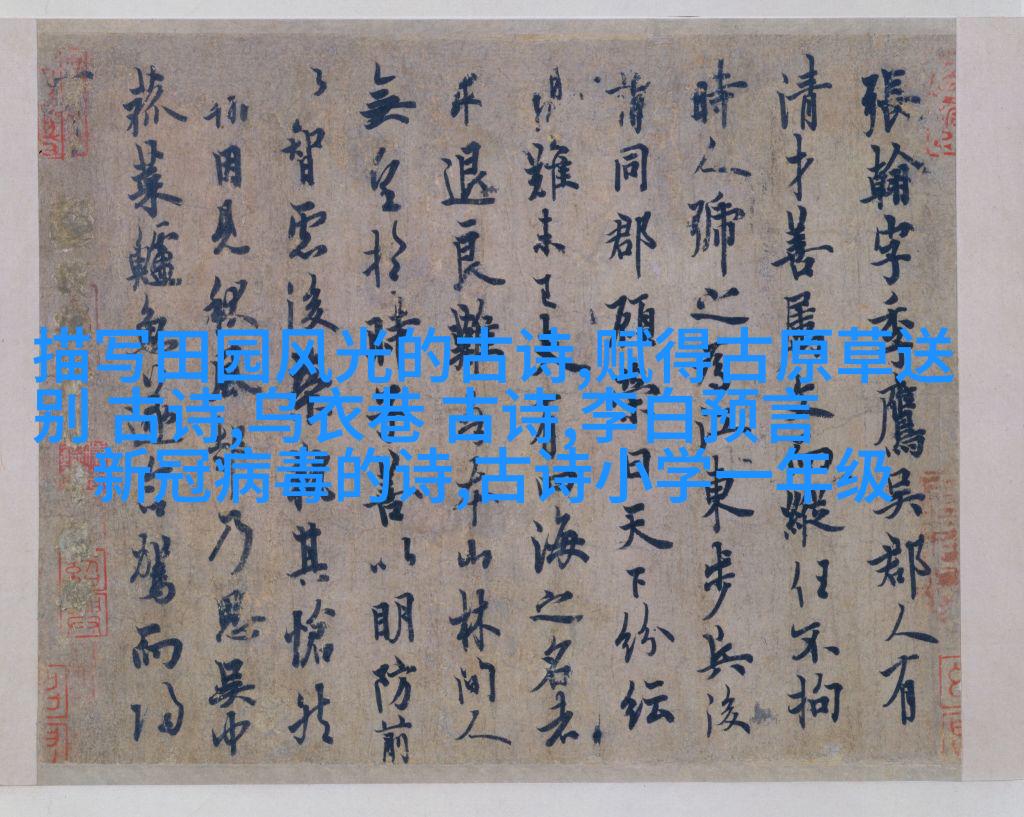 張翰字季鷹吳郡人有
清才善屬文而縱任不拘
時人號之為江東步兵後
謂同郡顧榮曰天下紛紜
難未已夫有四海之名者
求退良難吾本山林間人
無望於時子善以明防前
以智慮後榮執其愴然
翰因見秋風起乃思吳中
菰菜鱸魚遂命駕而歸
描写田园风光的古诗,赋得古原草送
别 古诗,乌衣巷 古诗,李白预言
新冠病毒的诗,古诗小学一年级